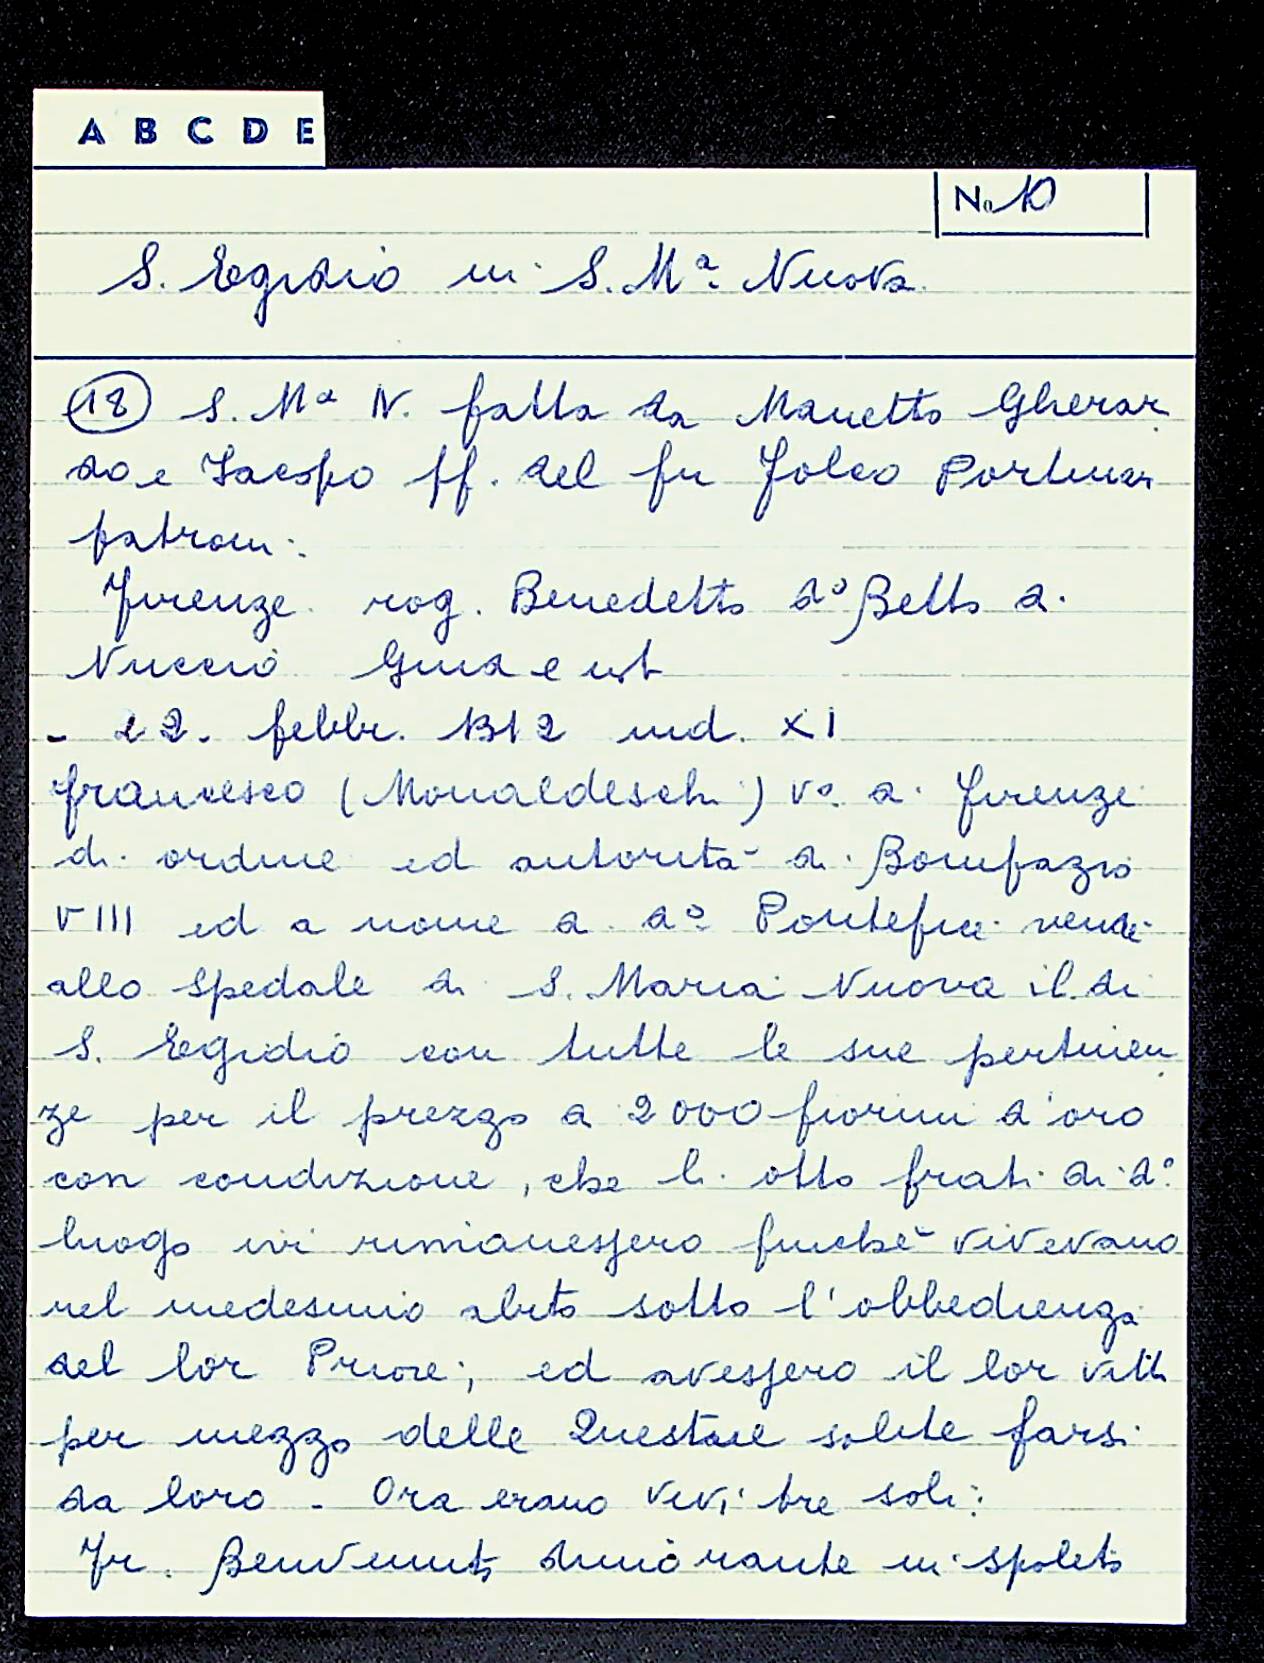 A B C D E
No 10
S. Egidio in S. Mª Nuova
(18) S. Mª N. fatta da Manetto Gherar
do e Iacopo ff. del fu Folco Portinari
patroni.
Firenze. rog. Benedetto dº Betto di
Nuccio Giud e not
- 22. febbr. 1312 ind. XI
Francesco (Monaldeschi) Vº di Firenze
di ordine ed autorità di Bonifazio
VIII ed a nome di dº Pontefice vendè
allo spedale di S. Maria Nuova il di
S. Egidio con tutte le sue pertinen
ze per il prezzo di 2000 fiorini d'oro
con condizione, che li otto frati di dº
luogo ivi rimanessero finchè vivevano
nel medesimo abito sotto l'obbedienza
del lor Priore; ed avessero il lor vitto
per mezzo delle Questue solite farsi
da loro - Ora erano vivi tre soli:
Fr. Benvenuto dimorante in Spoleto